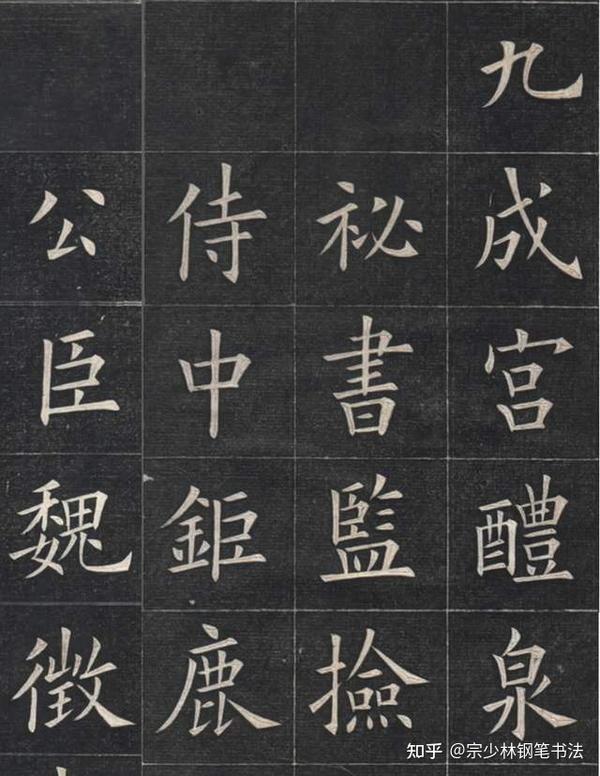 九成宮醴泉
祕書監撿
侍中鉅鹿
公臣魏徵
知乎 @宗少林钢笔书法